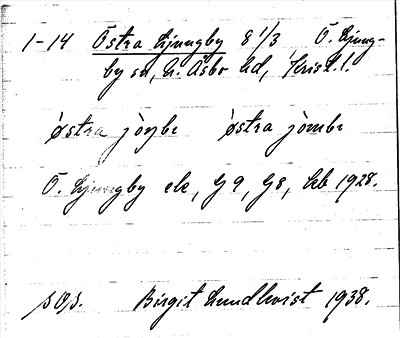 1-14 Östra Ljungby 8 1/3 Ö. Ljung-
by sn, N. Åsbo hd, Krist. l.
'østra jòŋbɛ 'østra jòmbɛ
Ö. Ljungby ek, G9, G8, Kb 1928.
Birgit Lundkvist 1938.